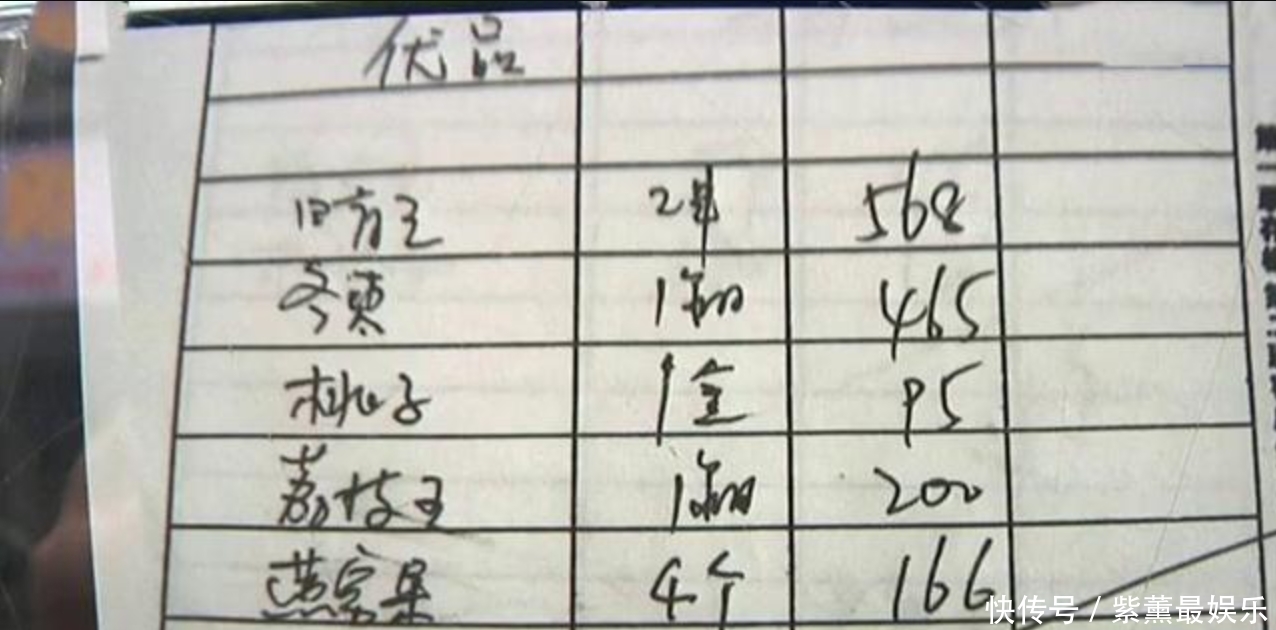 优品
日方王 2串 568
冬枣 1箱 465
桃子 1盒 95
荔枝王 1箱 200
燕窝果 4个 166
快传号 / 紫薰最娱乐